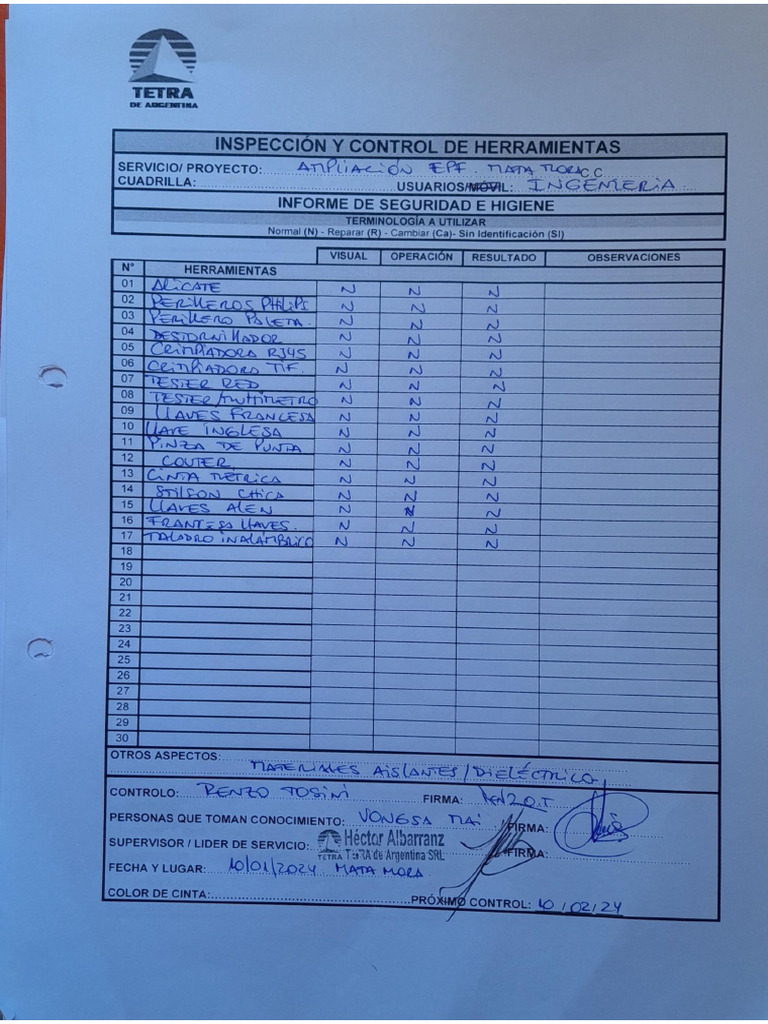 TETRA
DE ARGENTINA
INSPECCIÓN Y CONTROL DE HERRAMIENTAS
SERVICIO/ PROYECTO: AMPLIACIÓN EPF MATA MORA CC
CUADRILLA: USUARIOS/MÓVIL: INGENIERIA
INFORME DE SEGURIDAD E HIGIENE
TERMINOLOGÍA A UTILIZAR
Normal (N) - Reparar (R) - Cambiar (Ca)- Sin Identificación (SI)
N° HERRAMIENTAS VISUAL OPERACIÓN RESULTADO OBSERVACIONES
01 ALICATE N N N
02 PERILLEROS PHILIPS N N N
03 PERILLERO PALETA. N N N
04 DESTORNILLADOR N N N
05 CRIMPIADORA RJ45 N N N
06 CRIMPIADORA TIF. N N N
07 TESTER RED N N N
08 TESTER/MULTIMETRO N N N
09 LLAVES FRANCESA N N N
10 LLAVE INGLESA N N N
11 PINZA DE PUNTA N N N
12 COUTER N N N
13 CINTA METRICA N N N
14 STILSON CHICA N N N
15 LLAVES ALEN N N N
16 FRANCESA LLAVES. N N N
17 TALADRO INALAMBRICO N N N
18
19
20
21
22
23
24
25
26
27
28
29
30
OTROS ASPECTOS:
MATERIALES AISLANTES/DIELÉCTRICO,
CONTROLO: RENZO TOSINI FIRMA: RENZO.T
PERSONAS QUE TOMAN CONOCIMIENTO: VONGSA MAI FIRMA:
SUPERVISOR / LIDER DE SERVICIO: TETRA Héctor Albarranz TETRA de Argentina SRL FIRMA:
FECHA Y LUGAR: 10/01/2024 MATA MORA
COLOR DE CINTA: PRÓXIMO CONTROL: 10/02/24